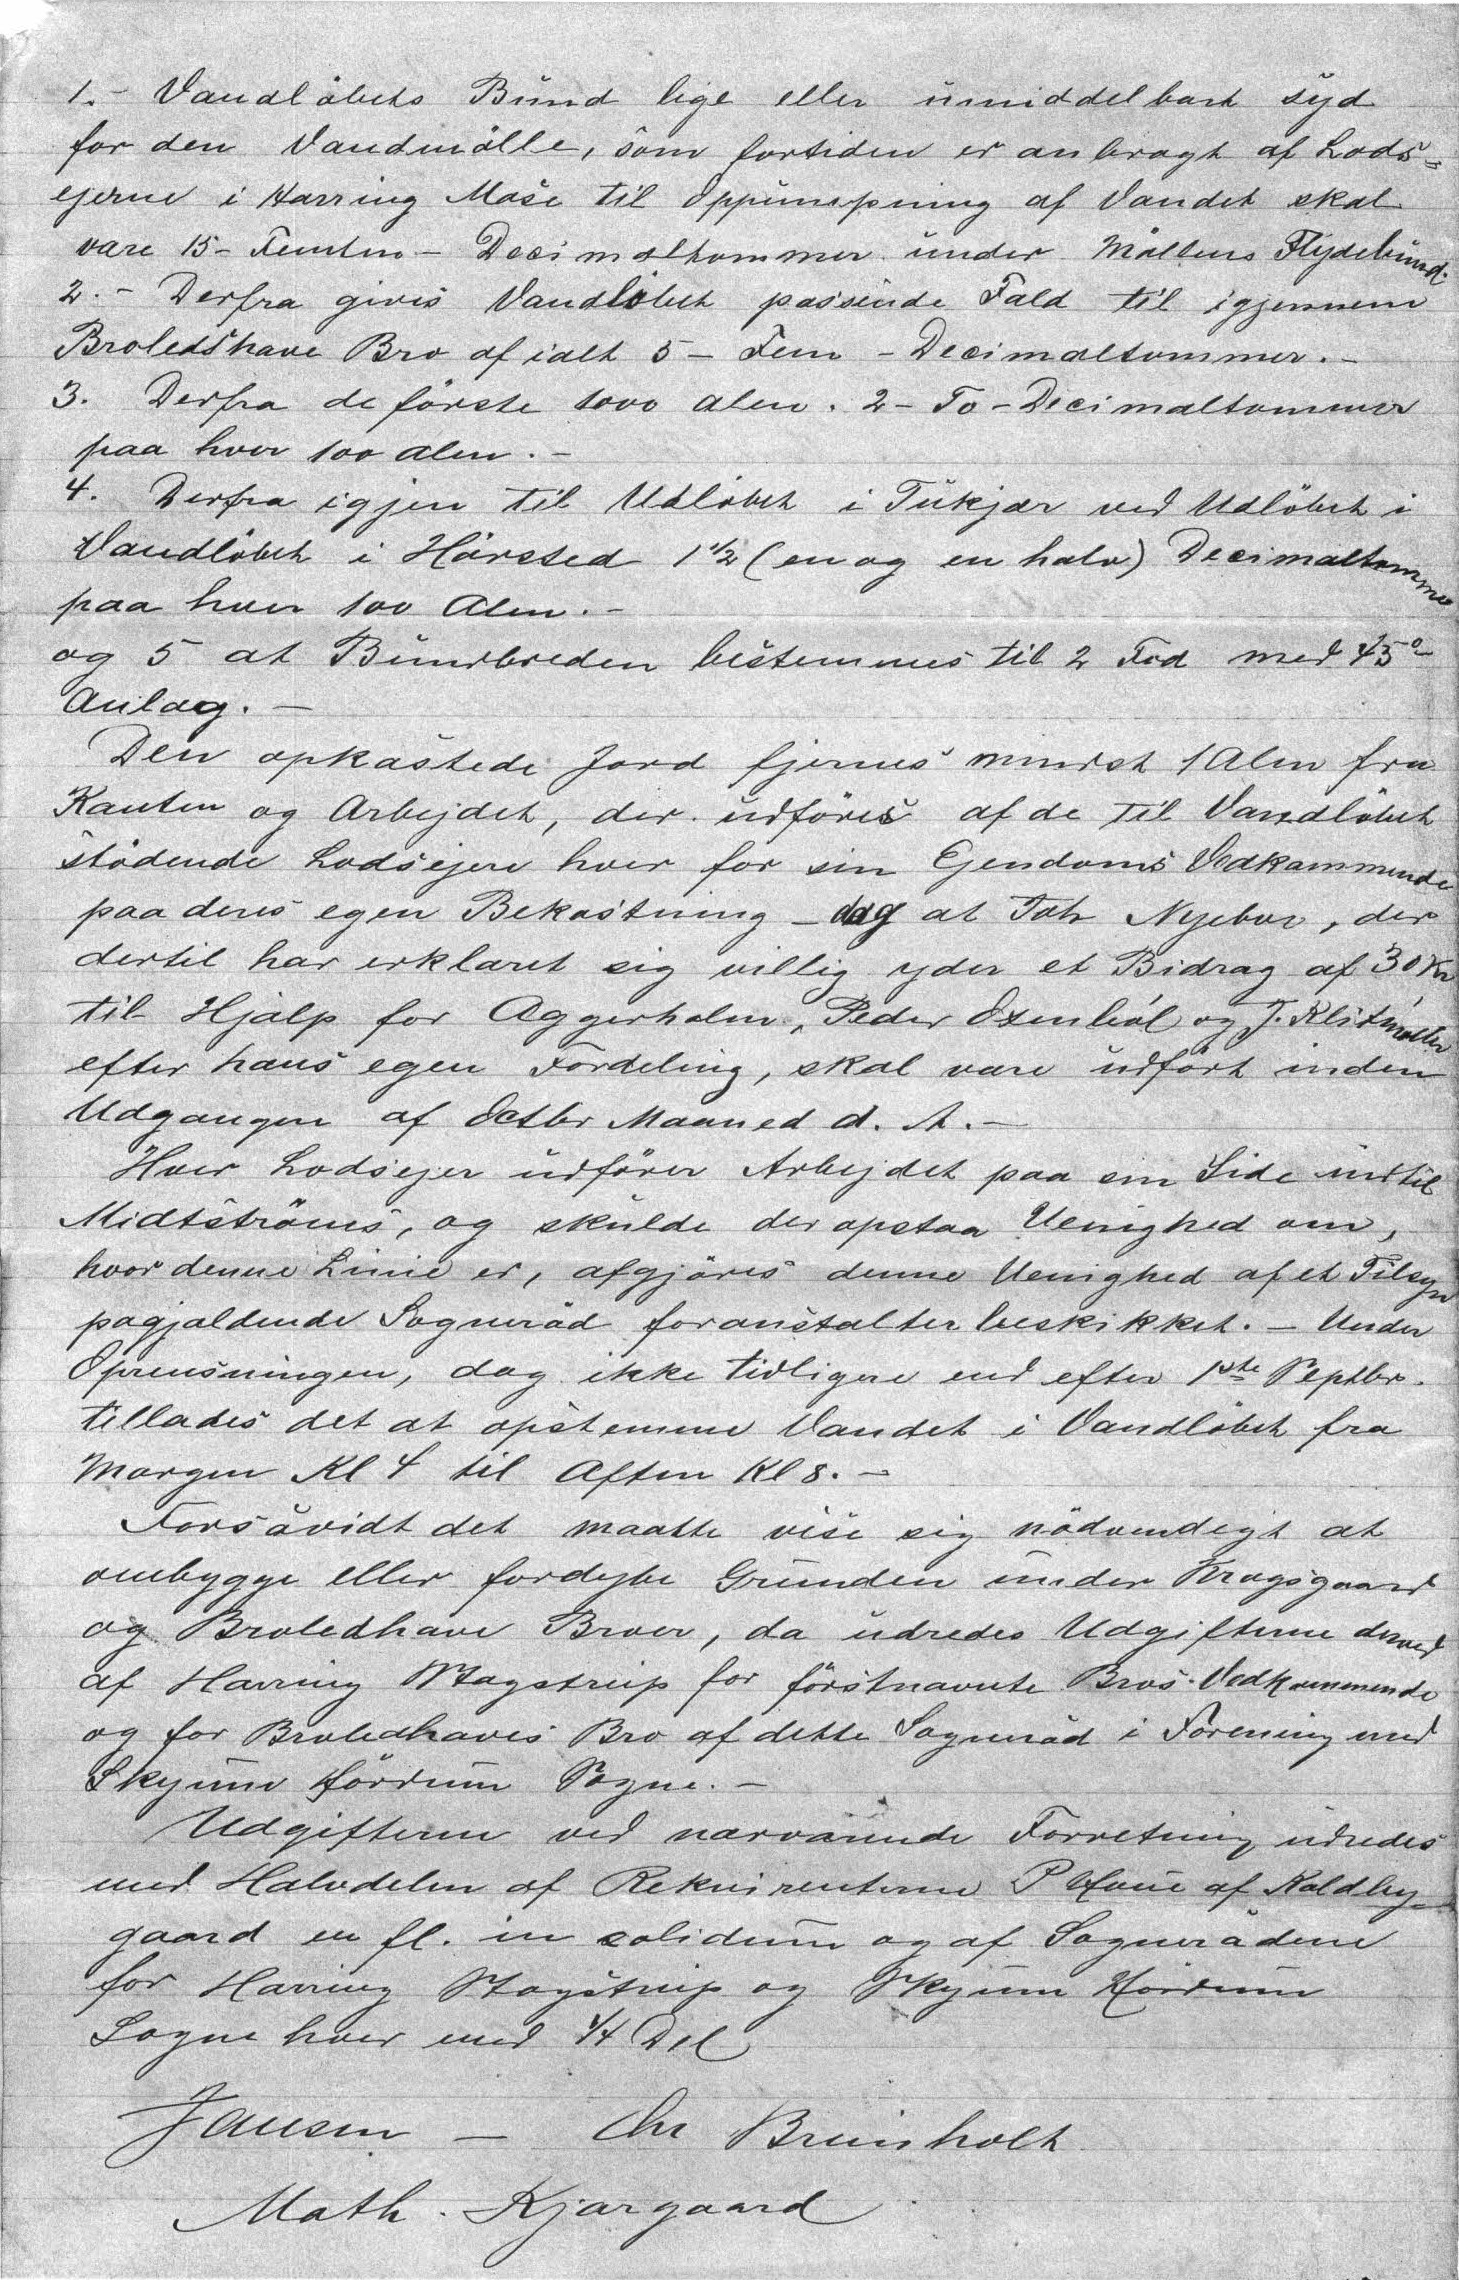 1.- Vandløbets Bund lige eller umiddelbart syd
for den Vandmølle, som fortiden er anbragt af Lods=
ejerne i Harring Mose til Oppumpning af Vandet skal
være 15 - Femten - Decimaltommer under Møllens Flydebund.
2.- Derfra gives Vandløbet passende Fald til igjennem
Broledshave Bro af ialt 5 - Fem - Decimaltommer.-
3. Derfra de første 1000 Alen. 2 - To - Decimaltommer
paa hver 100 Alen.-
4. Derfra igjen til Udløbet i Tukjær ved Udløbet i
Vandløbet i Hørsted 1 1/2 (en og en halv) Decimaltomme
paa hver 100 Alen.-
og 5 at Bundbreden bestemmes til 2 Fod med 45°
Anlæg.-
Den opkastede Jord fjernes mindst 1 Alen fra
Kanten og Arbejdet, der udføres af de til Vandløbet
stødende Lodsejere hver for sin Ejendoms Vedkommende
paa deres egen Bekostning - dog at Toft Nyeboe, der
dertil har erklæret sig villig yder et Bidrag af 30 Kr
til Hjælp for Aggerholm, Peder Oxenbøl og J. Klitmøller
efter hans egen Fordeling, skal være udført inden
Udgangen af Octbr Maaned d. A.-
Hver Lodsejer udfører Arbejdet paa sin Side indtil
Midtstrøms, og skulde der opstaa Uenighed om,
hvor denne Linie er, afgjøres denne Uenighed af et Tilsyn
pagjældende Sogneråd foranstalter beskikket.- Under
Oprensningen, dog ikke tidligere end efter 1ste Septbr.
tillades det at opstemme Vandet i Vandløbet fra
Morgen Kl 4 til Aften Kl 8.-
Forsåvidt det maatte vise sig nødvendigt at
ombygge eller fordybe Grunden under Kragsgaard
og Broledhave Broer, da udredes Udgifterne derved
af Harring Stagstrup for førstnævnte Bros Vedkommende
og for Broledhaves Bro af dette Sogneråd i Forening med
Skyum Hørdum Sogne.-
Udgifterne ved nærværende Forretning udredes
med Halvdelen af Rekvirenterne P Hove af Koldby=
gaard en fl. in solidum og af Sognerådene
for Harring Stagstrup og Skyum Hørdum
Sogne hver med 1/4 Del
Jansen - Chr Bruisholt
Math. Kjærgaard